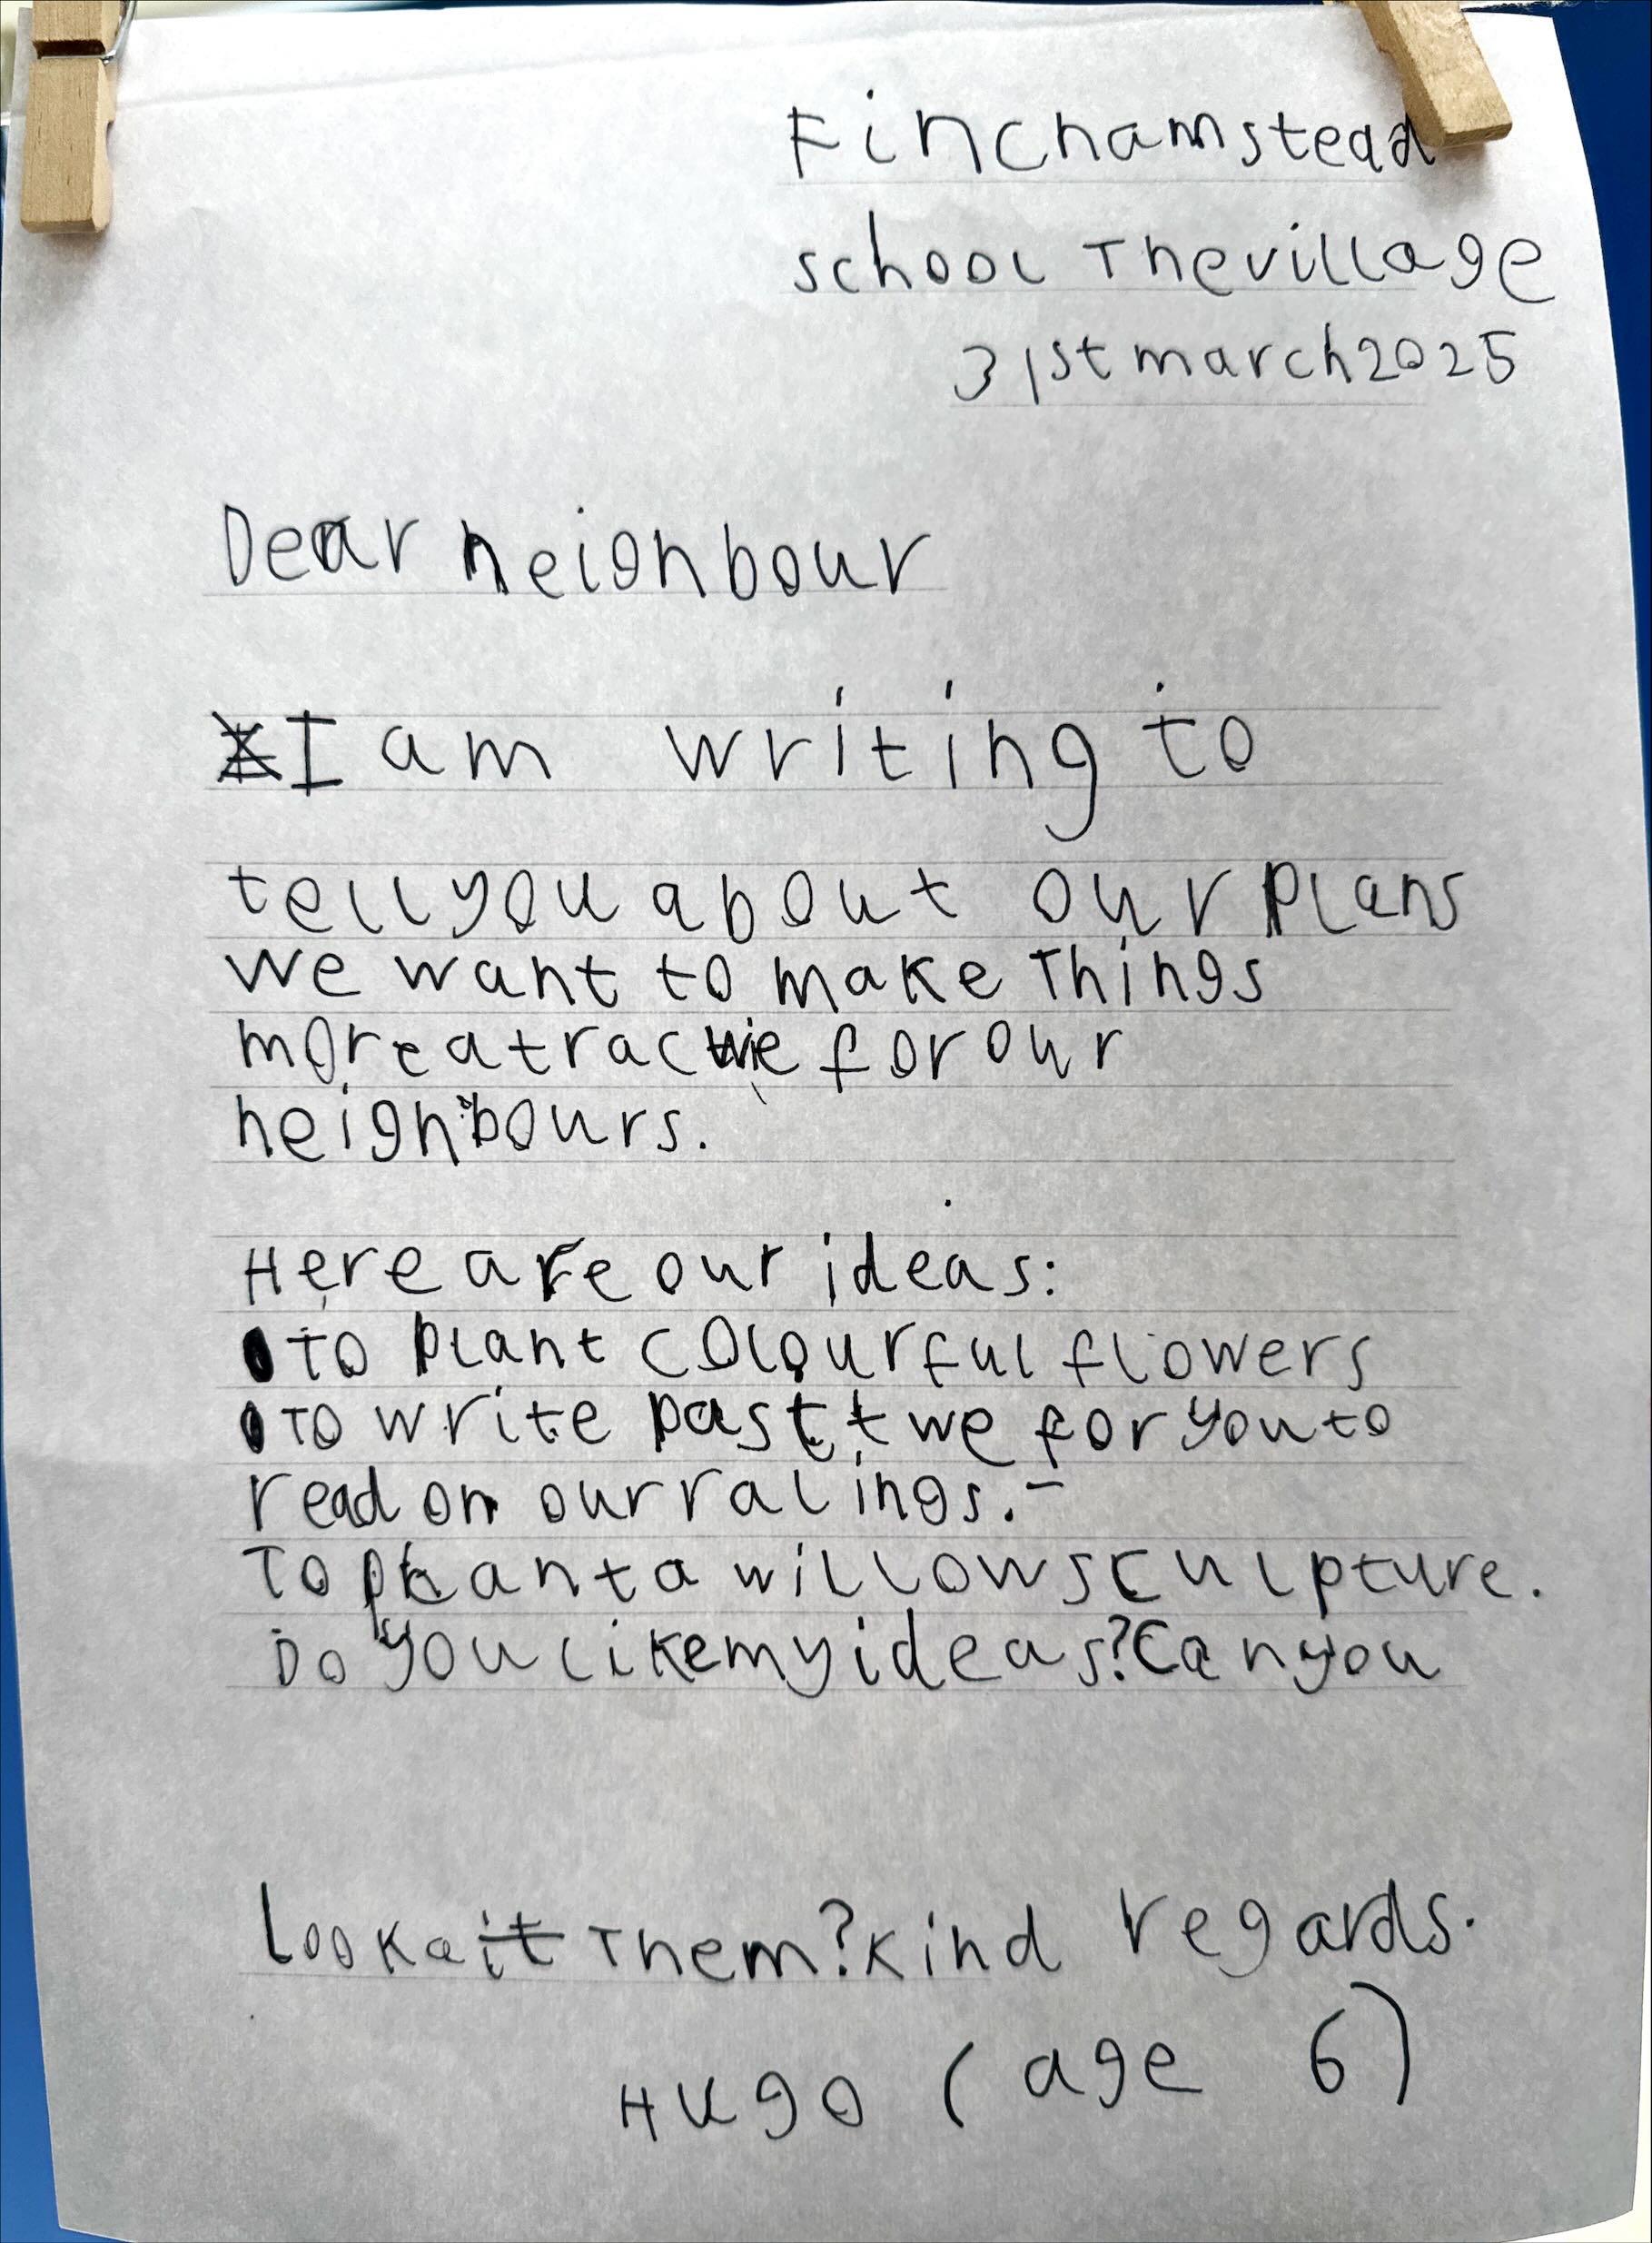 Finchamstead
school The village
31st march 2025
Dear neighbour
I am writing to
tell you about our plans
we want to make Things
more atractive for our
neighbours.
Here are our ideas:
• To plant colourful flowers
• To write for you to
read on our ralings. -
To plant a willow sculpture.
Do you like my ideas? Can you
Look at Them? Kind regards.
Hugo (age 6)